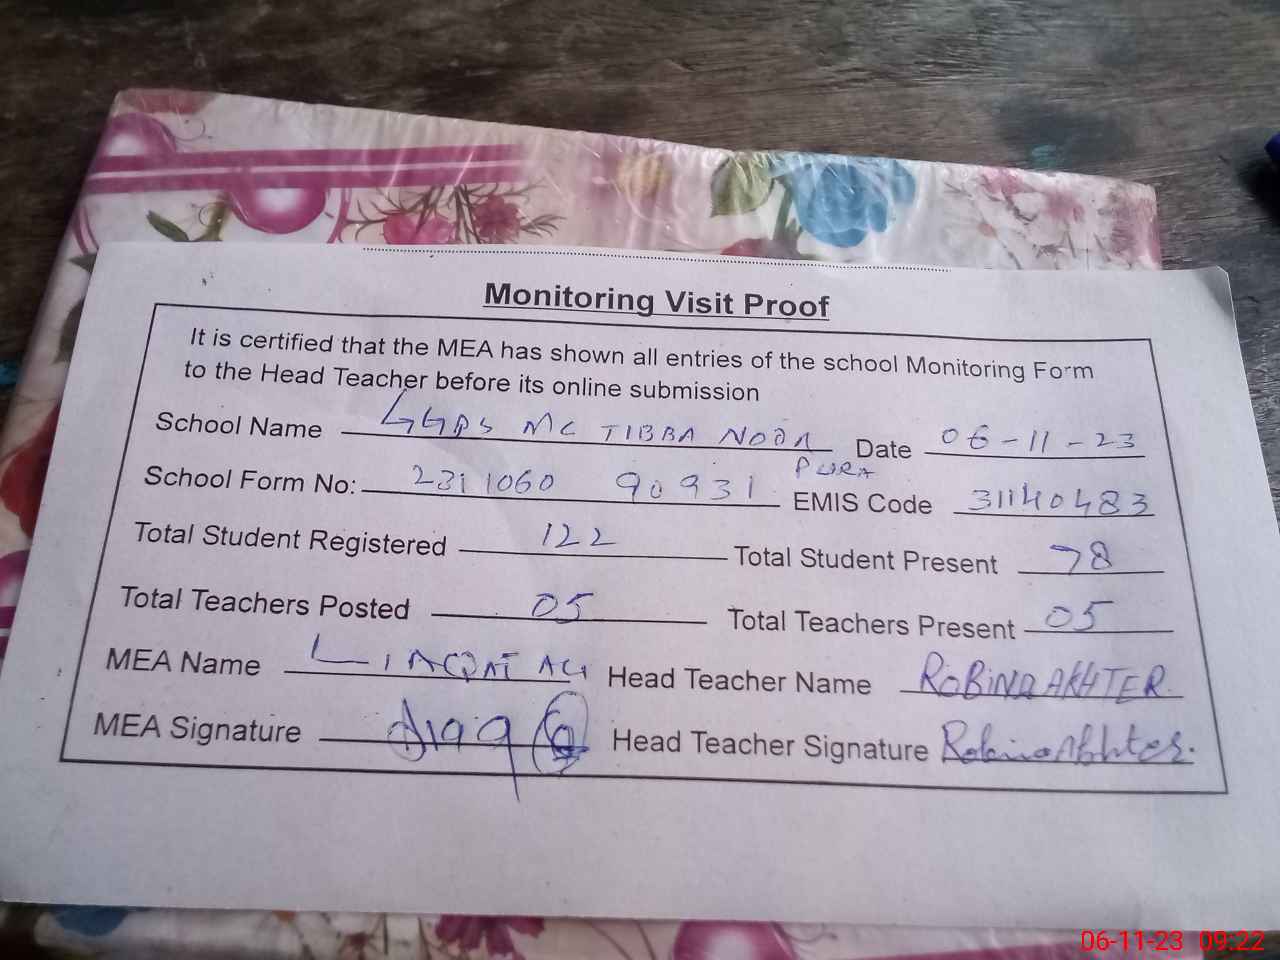 Monitoring Visit Proof
It is certified that the MEA has shown all entries of the school Monitoring Form
to the Head Teacher before its online submission
School Name GGPS MC TIBBA NOOR PURA Date 06-11-23
School Form No: 2311060 90931 EMIS Code 31140483
Total Student Registered 122 Total Student Present 78
Total Teachers Posted 05 Total Teachers Present 05
MEA Name LIAQAT ALI Head Teacher Name ROBINA AKHTER
MEA Signature Head Teacher Signature Robina Akhter.
06-11-23 09:22